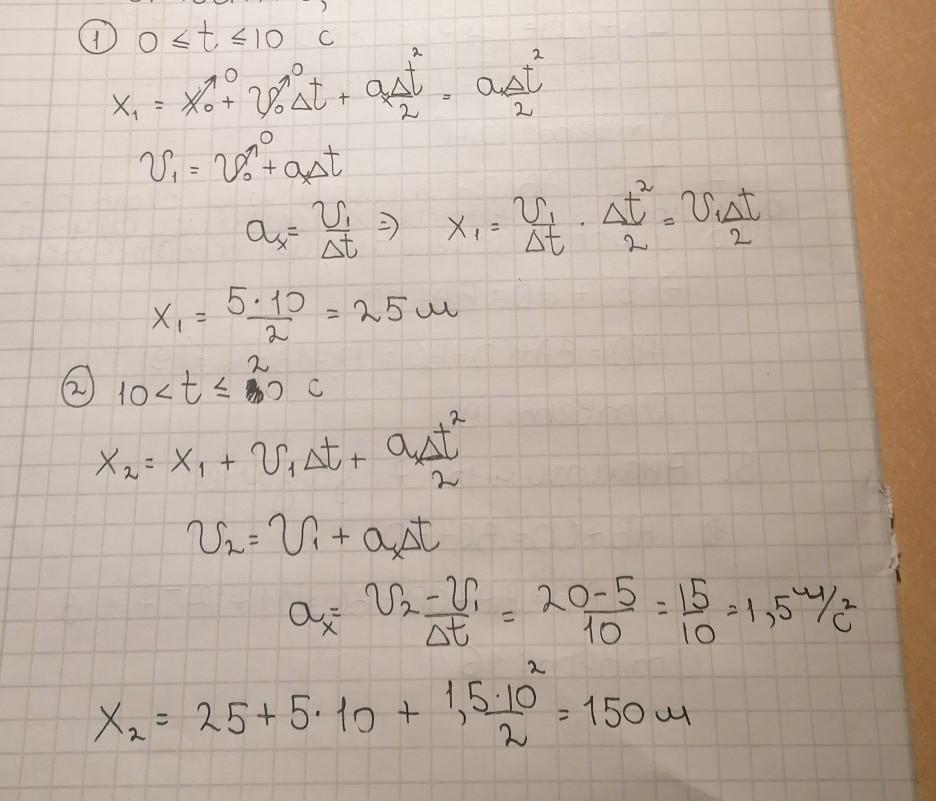 ① 0 ≤ t ≤ 10 с
x₁ = x₀↗⁰ + v₀↗⁰Δt + aₓΔt²/2 = aₓΔt²/2
v₁ = v₀↗⁰ + aₓΔt
aₓ = v₁/Δt ⇒ x₁ = v₁/Δt · Δt²/2 = v₁Δt/2
x₁ = 5·10/2 = 25 м
② 10 < t ≤ 20 с
x₂ = x₁ + v₁Δt + aₓΔt²/2
v₂ = v₁ + aₓΔt
aₓ = v₂-v₁/Δt = 20-5/10 = 15/10 = 1,5 м/с²
x₂ = 25 + 5·10 + 1,5·10²/2 = 150 м